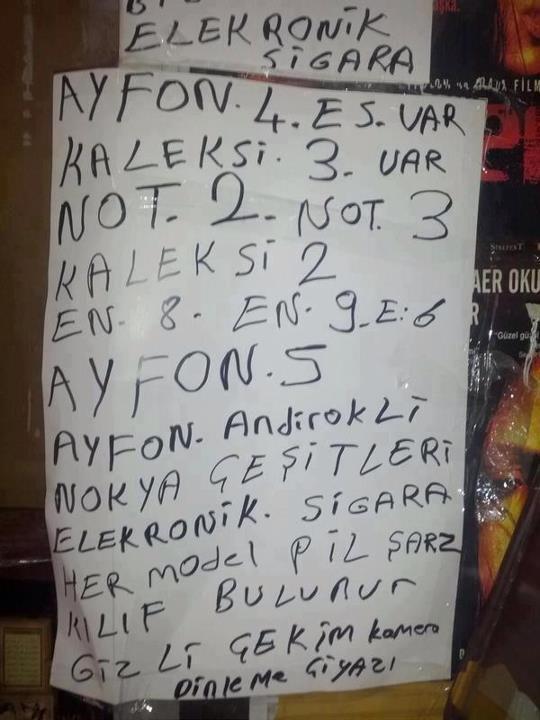 ELEKRONİK
SİGARA
AYFON. 4. ES. VAR
KALEKSİ. 3. VAR
NOT. 2. NOT. 3
KALEKSİ 2
EN. 8. EN. 9_E:6
AYFON. 5
AYFON. ANDİROKLİ
NOKYA ÇEŞİTLERİ
ELEKRONİK. SİGARA
HER MODEL PİL ŞARZ
KILIF BULUNUr
GİZLİ ÇEKİM kamera
Dinleme CİYAZI
FİLM
AER OKU
Güzel